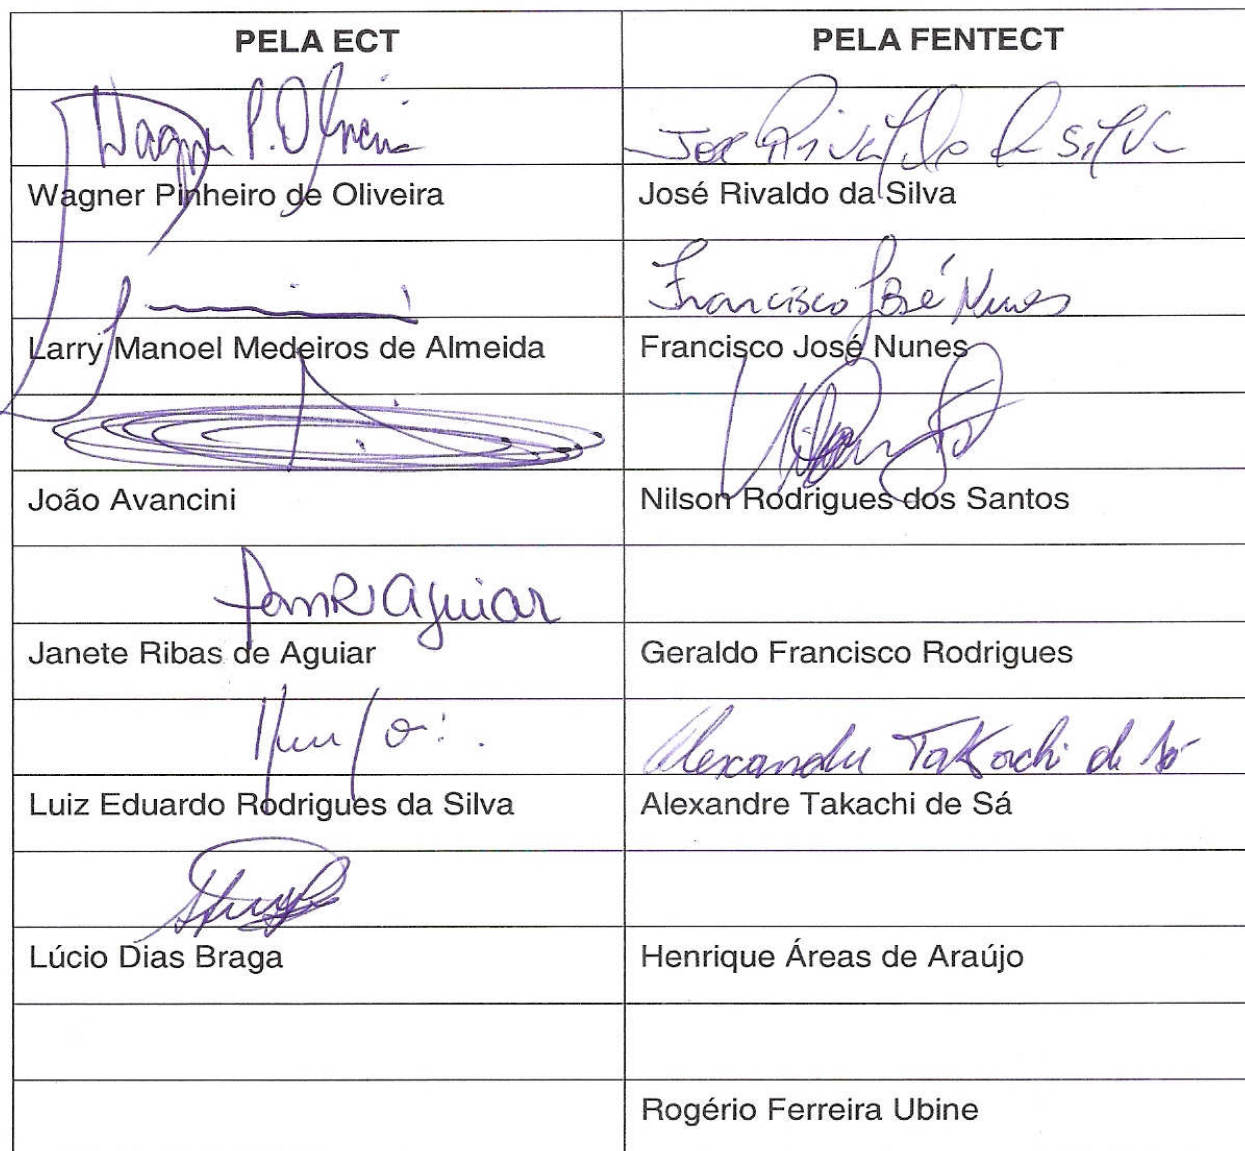 PELA ECT PELA FENTECT
Wagner P. Oliveira José Rivaldo da Silva
Wagner Pinheiro de Oliveira José Rivaldo da Silva
Francisco José Nunes
Larry Manoel Medeiros de Almeida Francisco José Nunes
João Avancini Nilson Rodrigues dos Santos
Aguiar
Janete Ribas de Aguiar Geraldo Francisco Rodrigues
Alexandre Takachi de Sá
Luiz Eduardo Rodrigues da Silva Alexandre Takachi de Sá
Lúcio Dias Braga Henrique Áreas de Araújo
Rogério Ferreira Ubine